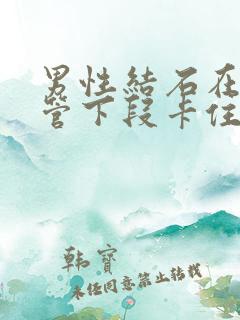 男性結石在
管下段卡住
韩寳
未经同意禁止转载